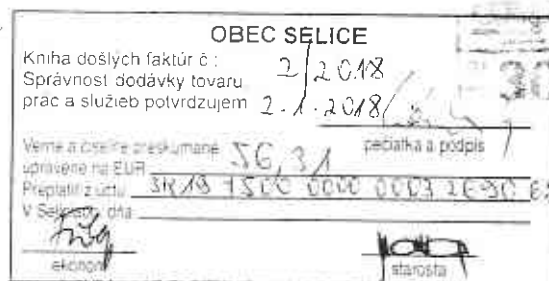 OBEC SELICE
Kniha došlých faktúr č : 2/2018
Správnost dodávky tovaru
prác a služieb potvrdzujem 2.1.2018
pečiatka a podpis
Vecne a číselne preskúmané
upravené na EUR 56,31
Preplatiť z účtu 7500 0000
V Seliciach, dňa
ekonóm
starosta